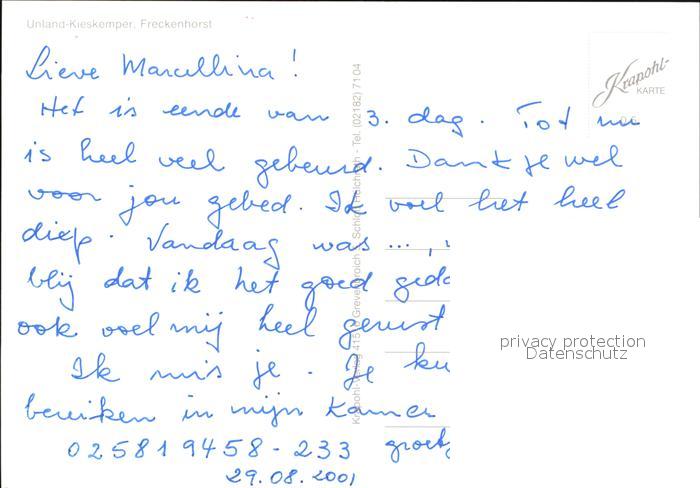 Unland-Kieskemper, Freckenhorst
Krapohl-
KARTE
Lieve Marcellina!
Het is eende van 3. dag. Tot nu
is heel veel gebeurd. Dank je wel
voor jou gebed. Ik voel het heel
diep. Vandaag was ...,
blij dat ik het goed geda
ook voel mij heel gerust
Ik mis je. Je ku
bereiken in mijn kamer
025819458-233 groetj
29.08.2001
Krapohl-Verlag 41516 Grevenbroich Schloß Hülchrath - Tel. (02182) 7104
privacy protection
Datenschutz